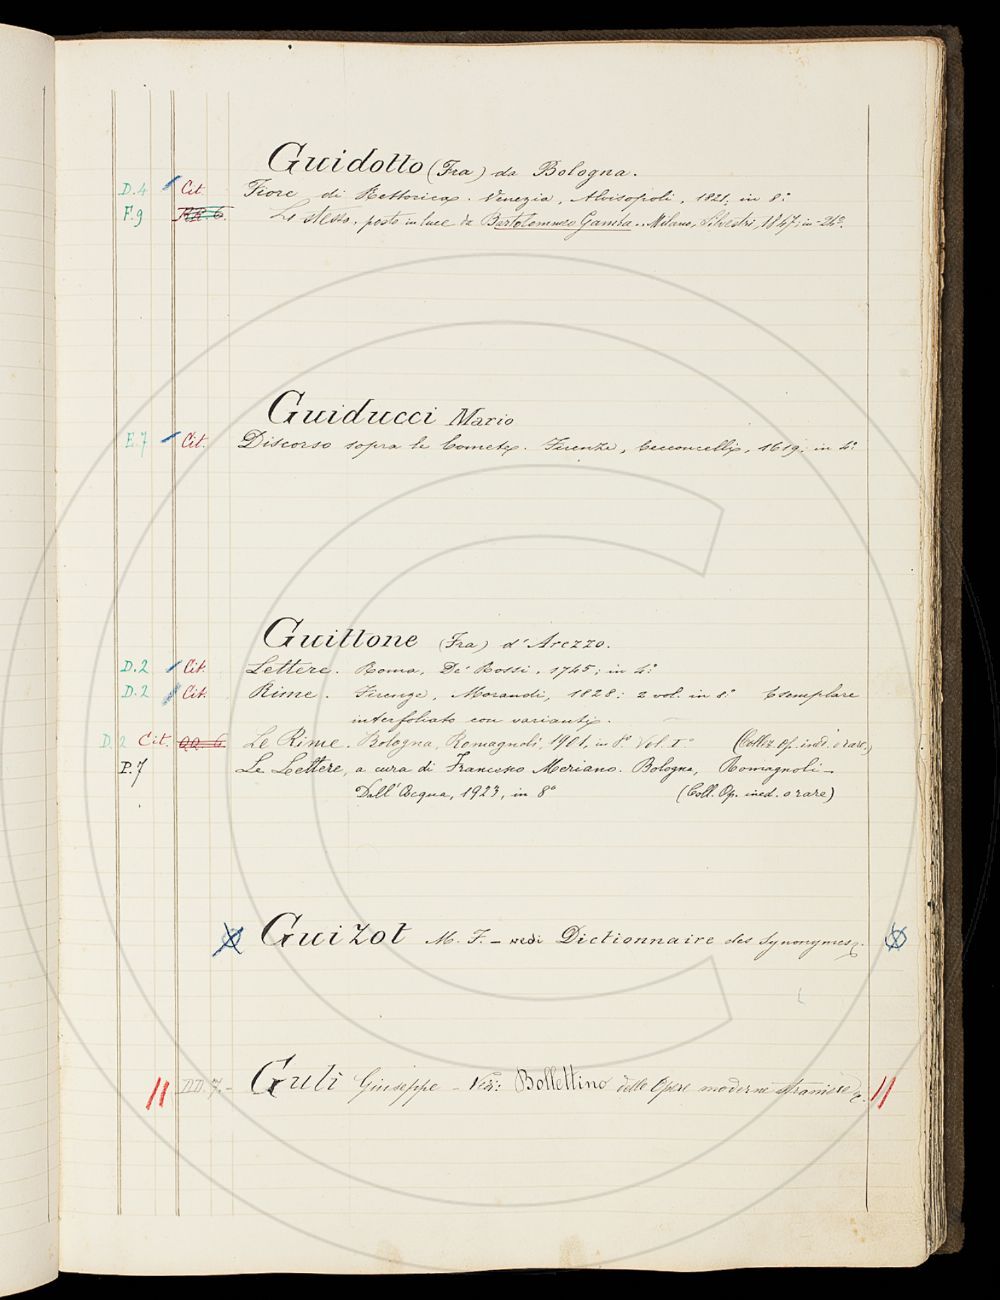 Guidotto (Fra) da Bologna.
D.4 Cit. Fiore di Rettorica. Venezia, Alvisopoli, 1821, in 8°
F.9 RR.6. Lo stesso, posto in luce da Bartolommeo Gamba.. Milano, Silvestri, 1847, in-24°.
Guiducci Mario
E.7 Cit. Discorso sopra le Comete. Firenze, Cecconcelli, 1619; in 4°
Guittone (Fra) d'Arezzo.
D.2 Cit. Lettere. Roma, De' Rossi, 1745; in 4°
D.2 Cit. Rime. Firenze, Morandi, 1828; 2 vol. in 8° Esemplare
interfoliato con varianti.
D.2 Cit. QQ.6 Le Rime. Bologna, Romagnoli, 1901, in 8°. Vol. I° (Collez. op. ined. o rare.)
P.7 Le Lettere, a cura di Francesco Meriano. Bologna, Romagnoli-
Dall'Acqua, 1923, in 8° (Coll. Op. ined. o rare)
Guizot M. F. - vedi Dictionnaire des Synonymes.
DD.7.- Guli Giuseppe - Ved: Bollettino delle Opere moderne straniere.